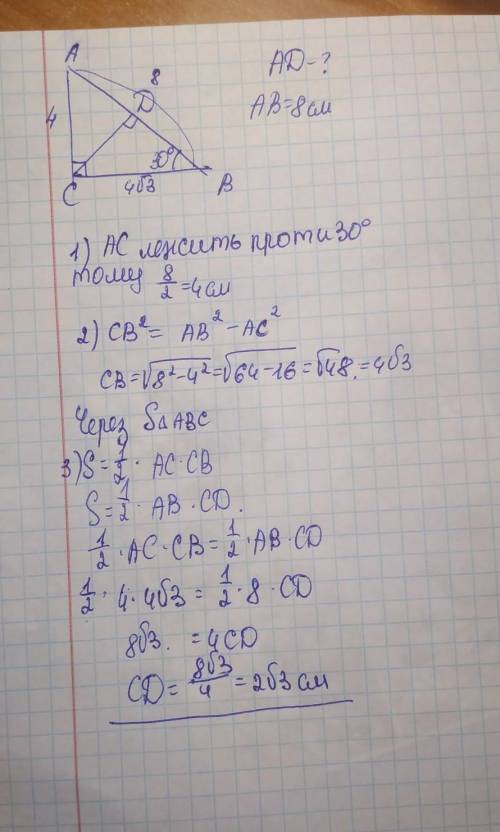 A
8
D
4
30°
C
4√3
B
AD-?
AB=8см
1) AC лежить проти 30°
тому 8/2=4см
2) CB²= AB²-AC²
CB=√8²-4²=√64-16=√48.=4√3
Через S△ABC
3) S=1/2·AC·CB
S=1/2·AB·CD.
1/2·AC·CB=1/2·AB·CD
1/2·4·4√3=1/2·8·CD
8√3. =4CD
CD=8√3/4=2√3см